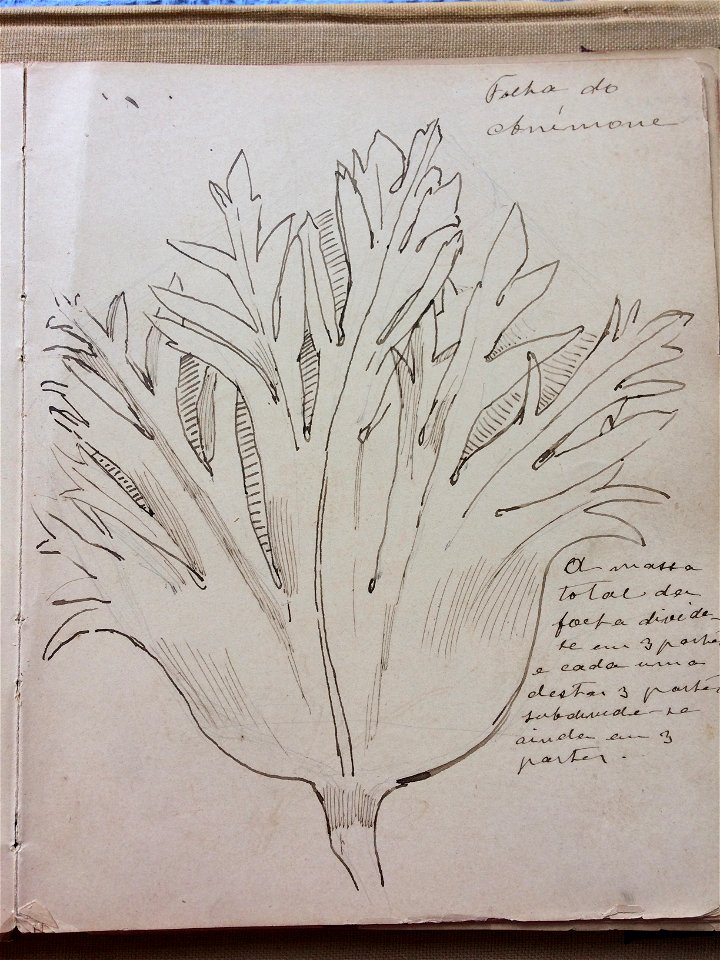 Folha do
Anémone
A massa
total da
folha divide-
se em 3 partes
e cada uma
destas 3 partes
subdivide-se
ainda em 3
partes.